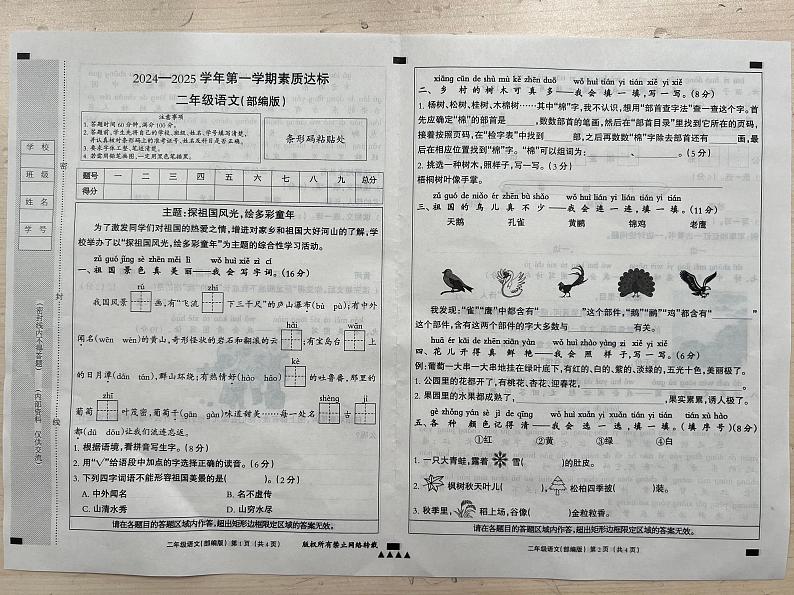 学 校
班 级
姓 名
学 号
密
封
线
(密封线内不得答题)
(内部资料 仅供交流)
2024—2025 学年第一学期素质达标
二年级语文(部编版)
注意事项
1. 答题时间 60 分钟,满分 100 分。
2. 答题前,学生先将自己的学校、班级、姓名、学号填写清楚,
并认真核对条形码上的准考证号、姓名及科目是否正确。
3. 要求字体工整、笔迹清楚。
4. 若需用铅笔画图,一定用黑色笔描黑。
条形码粘贴处
题号 一 二 三 四 五 六 七 八 九 总分
得分
主题:探祖国风光,绘多彩童年
为了激发同学们对祖国的热爱之情,增进对家乡和祖国大好河山的了解,学
校举办了以“探祖国风光,绘多彩童年”为主题的综合性学习活动。
zǔ guó jǐng sè zhēn měi lì wǒ huì xiě zì cí
一、祖 国 景 色 真 美 丽——我 会 写 字 词。(16分)
rú zhí
我国风景 画,有“飞流 下三千尺”的庐山瀑布(bù pù);有中外
hǎi wān
闻名(wēn wén)的黄山,奇形怪状的岩石和翻滚的云 ;有宝岛台 上
kè
的日月潭(dǎn tán),群山环绕;有热情好(hào hǎo) 的吐鲁番,那里的
zhī shèng jì
葡萄 叶茂密,葡萄干(gān gàn)味道甜美……每一处名 古
都(dū dōu)让我们流连忘返。
1. 根据语境,看拼音写生字。(8分)
2. 用“√”给语段中加点的字选择正确的读音。(6分)
3. 下列四字词语不能形容祖国美景的是( )。(2分)
A. 中外闻名 B. 名不虚传
C. 山清水秀 D. 山穷水尽
请在各题目的答题区域内作答,超出矩形边框限定区域的答案无效。
二年级语文(部编版) 第 1 页 (共 4 页) 版权所有禁止网络转载
xiāng cūn de shù mù kě zhēn duō wǒ huì tián yi tián xiě yi xiě
二、乡 村 的 树 木 可 真 多——我 会 填 一 填,写 一 写。(8分)
1. 杨树、松树、桂树、木棉树……其中“棉”字,我不认识,想用“部首查字法”查一查这个字。首
先应确定“棉”的部首是 ,数数部首的笔画,然后在“部首目录”里找到它所在的页码,
接着按照页码,在“检字表”中找到 部,之后再数数“棉”字除去部首还有 画,最
后在相应位置找到“棉”字。“棉”可以组词为: 、 。(5分)
2. 挑选一种树木,照样子,写一写。(3分)
梧桐树叶像手掌。
zǔ guó de niǎo ér zhēn bù shǎo wǒ huì lián yi lián tián yi tián
三、祖 国 的 鸟 儿 真 不 少——我 会 连 一 连,填 一 填。(11分)
天鹅 孔雀 黄鹂 锦鸡 老鹰
我发现:“雀”“鹰”中都含有“ ”这个部件,“鹅”“鹂”“鸡”都含有“ ”
这个部件,含有这两个部件的字大多数与 有关。
huā ér kāi de zhēn xiān yàn wǒ huì zhào yàng zi xiě yi xiě
四、花 儿 开 得 真 鲜 艳——我 会 照 样 子,写 一 写。(6分)
例:葡萄一大串一大串地挂在绿叶底下,有红的、白的、紫的、淡绿的,五光十色,美丽极了。
1. 公园里的花都开了,有桃花、杏花、迎春花, 。
2. 果园里的水果都成熟了, ,果实累累,诱人极了。
gè zhǒng yán sè jì de qīng wǒ huì xuǎn yi xuǎn tián yi tián tián xù hào
五、各 种 颜 色 记 得 清——我 会 选 一 选,填 一 填。(填 序 号)(8分)
①红 ②黄 ③绿 ④白
1. 一只大青蛙,露着 雪( )的肚皮。
2. 枫树秋天叶儿( ), 松柏四季披( )装。
3. 秋季里, 稻上场,谷像( )金粒粒香。
请在各题目的答题区域内作答,超出矩形边框限定区域的答案无效。
二年级语文(部编版) 第 2 页 (共 4 页)